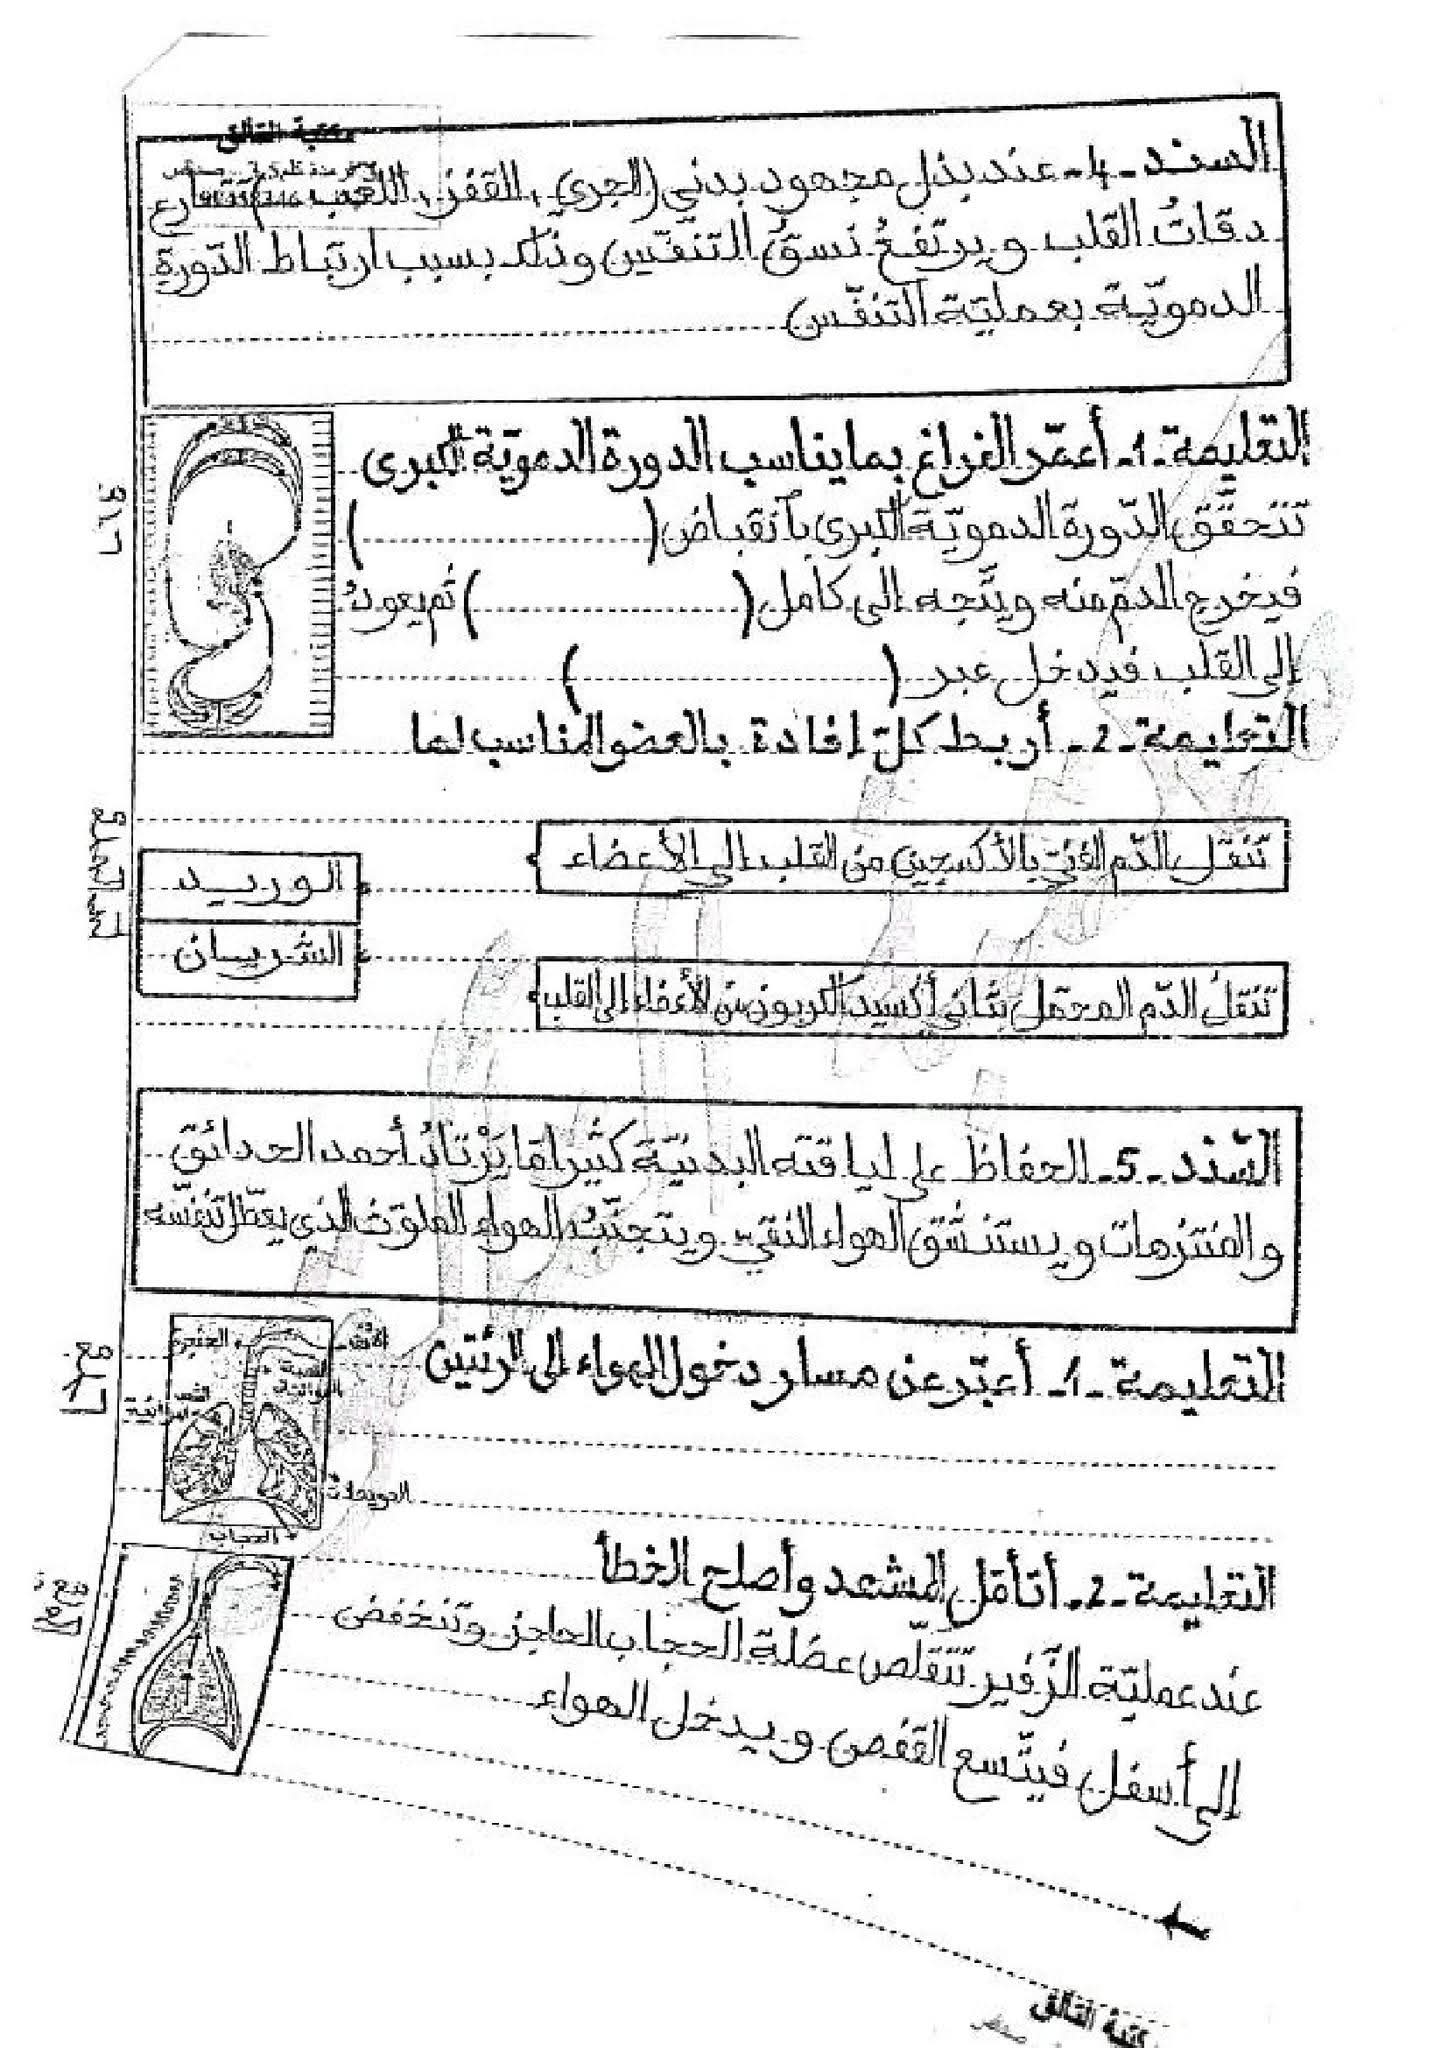 مكتبة التألق
السند - 4 - عند بذل مجهود بدني (الجري، القفز، اللعب) تتسارع
دقات القلب ويرتفع نسق التنفّس وذلك بسبب ارتباط الدّورة
الدمويّة بعمليّة التنفّس
التعليمة - 1 - أعمّر الفراغ بما يناسب الدورة الدمويّة الكبرى
تتحقّق الدّورة الدمويّة الكبرى بانقباض (..............)
فيخرج الدّم منه ويتّجه إلى كامل (..............) ثم يعودُ
إلى القلب فيدخل عبر (..............)
مع 1
التعليمة - 2 - أربط كلّ إفادة بالعضو المناسب لها
تنقل الدّم الغني بالأكسجين من القلب إلى الأعضاء
الوريد
الشريان
تنقلُ الدّم المحمّل بثاني أكسيد الكربون من الأعضاء إلى القلب
السّند - 5 - للحفاظ على لياقته البدنيّة كثيرا مَا يَرْتَادُ أحمد الحدائق
والمنتزهات ويستنشق الهواء النقيّ ويتجنّبُ الهواء الملوّث الذي يعطّل تنفّسه
التعليمة - 1 - أعبّر عن مسار دخول الهواء إلى الرئتين
الأنف
الحنجرة
الحويصلات
الحجاب
التعليمة - 2 - أتأمّل المشهد وأصلح الخطأ
عند عمليّة الزّفير تتقلّص عضلة الحجاب الحاجز وتنخفض
إلى أسفل فيتّسع القفص ويدخل الهواء
مكتبة التألق